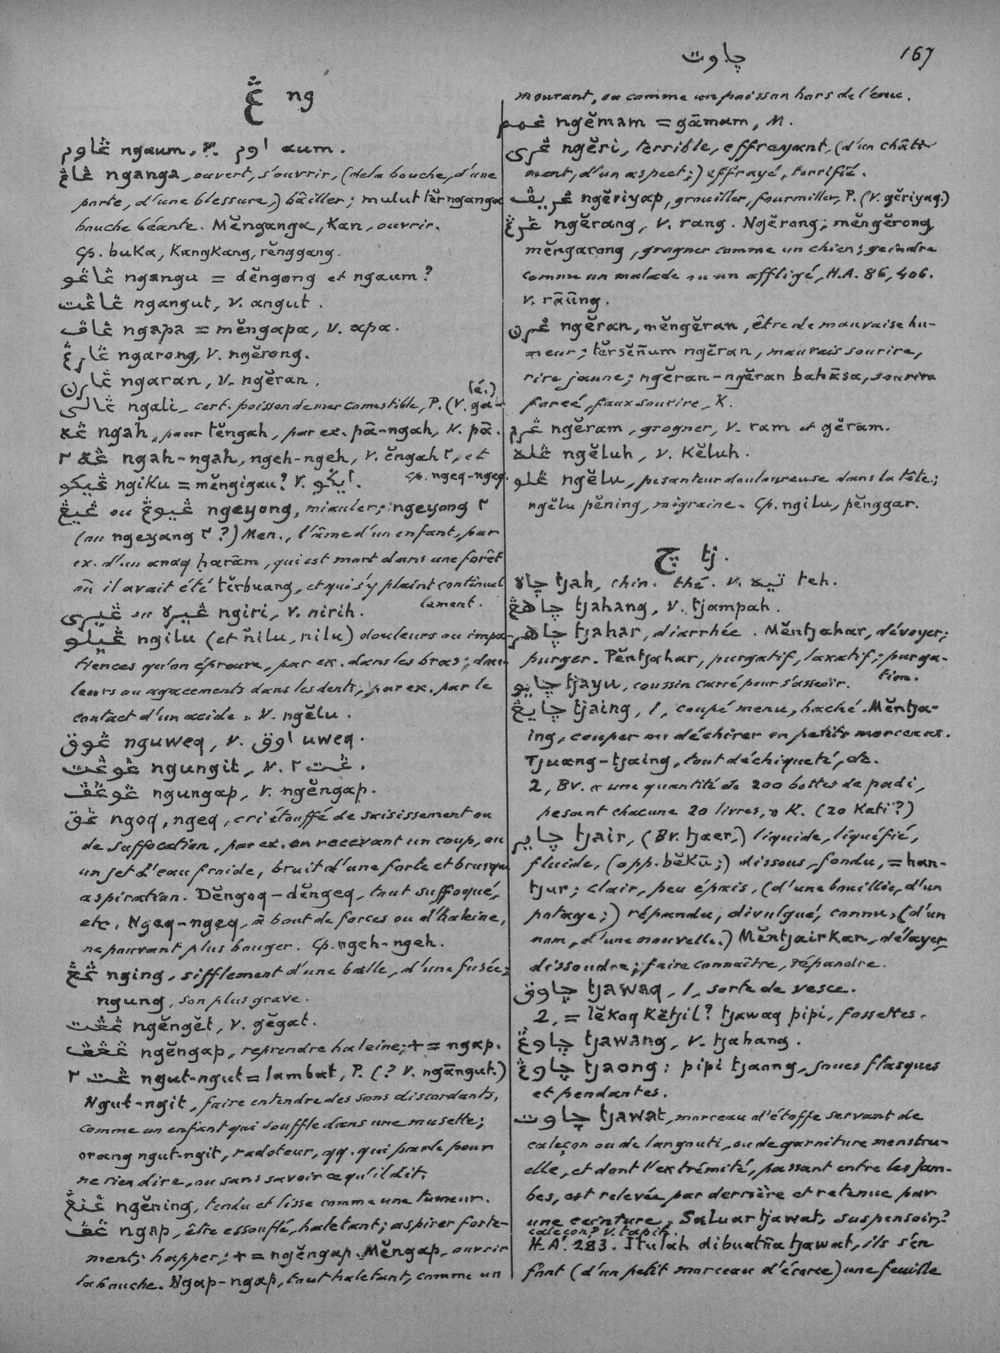 چاوت 167
ڠ ng
ڠاوم ngaum, v. اوم aum.
ڠاڠ nganga, ouvert, s'ouvrir, (de la bouche, d'une
porte, d'une blessure,) bâiller; mulut tĕrnganga
bouche béante. Mĕnganga, Kan, ouvrir.
Cp. buKa, KangKang, rĕnggang.
ڠاڠو ngangu = dĕngong et ngaum?
ڠاڠت ngangut, v. angut.
ڠاڤ ngapa = mĕngapa, v. apa.
ڠارڠ ngarong, v. ngĕrong.
ڠارن ngaran, v. ngĕran.
ڠالى ngali, cert. poisson de mer comestible, P. (V. ga- (é.)
ڠه ngah, pour tĕngah, par ex. pā-ngah, v. pā.
ڠه ٢ ngah-ngah, ngeh-ngeh, v. ĕngah ٢, et
ڠيکو ngiKu = mĕngigau? V. ايکو. Cp. ngeq-ngeq.
ڠيڠ ou ڠيوڠ ngeyong, miauler; ngeyong ٢
(ou ngeyang ٢ ?) Men., l'âme d'un enfant, par
ex. d'un anaq ḥarām, qui est mort dans une forêt
où il avait été tĕrbuang, et qui s'y plaint continuel
lement.
ڠيرى ou ڠيره ngiri, v. nirih.
ڠيلو ngilu (et ñilu, nilu) douleurs ou impa-
tiences qu'on éprouve, par ex. dans les bras; dou-
leurs ou agacements dans les dents, par ex. par le
contact d'un acide. V. ngĕlu.
ڠوق nguweq, v. اوق uweq.
ڠوڠت ngungit, v. ڠت ٢.
ڠوڠڤ ngungap, v. ngĕngap.
ڠق ngoq, ngeq, cri étouffé de saisissement ou
de suffocation, par ex. en recevant un coup, ou
un jet d'eau froide, bruit d'une forte et brusque
aspiration. Dĕngoq-dĕngeq, tout suffoqué,
etc. Ngeq-ngeq, à bout de forces ou d'haleine,
ne pouvant plus bouger. Cp. ngeh-ngeh.
ڠڠ nging, sifflement d'une balle, d'une fusée;
ngung, son plus grave.
ڠڠت ngĕngĕt, v. gĕgat.
ڠڠڤ ngĕngap, reprendre haleine; + = ngap.
ڠت ٢ ngut-ngut = lambat, P. (? V. ngāngut.)
Ngut-ngit, faire entendre des sons discordants,
comme un enfant qui souffle dans une musette;
orang ngut-ngit, radoteur, qq. qui parle pour
ne rien dire, ou sans savoir ce qu'il dit.
ڠنڠ ngĕning, tendu et lisse comme une tumeur.
ڠڤ ngap, être essoufflé, haletant; aspirer forte-
ment; happer; + = ngĕngap. Mĕngap, ouvrir
la bouche. Ngap-ngap, tout haletant, comme un
mourant, ou comme un poisson hors de l'eau.
ڠمم ngĕmam = gāmam, M.
ڠرى ngĕri, terrible, effrayant, (d'un châti-
ment, d'un aspect;) effrayé, terrifié.
ڠريڤ ngĕriyap, grouiller, fourmiller, P. (V. gĕriyaq.)
ڠرڠ ngĕrang, v. rang. Ngĕrong; mĕngĕrong
mĕngarong, grogner comme un chien; geindre
comme un malade ou un affligé, H.A. 86, 406.
v. rāūng.
ڠرن ngĕran, mĕngĕran, être de mauvaise hu-
meur; tĕrsĕñum ngĕran, mauvais sourire,
rire jaune; ngĕran-ngĕran bahāsa, sourire
forcé, faux sourire, K.
ڠرم ngĕram, grogner, v. ram et gĕram.
ڠله ngĕluh, v. Kĕluh.
ڠلو ngĕlu, pesanteur douloureuse dans la tête;
ngĕlu pĕning, migraine. Cp. ngilu, pĕnggar.
چ tj.
چاه tjah, chin. thé. v. تيه teh.
چاهڠ tjahang, v. tjampah.
چاهر tjahar, diarrhée. Mĕntjahar, dévoyer;
purger. Pĕntjahar, purgatif, laxatif; purga-
tion.
چايو tjayu, coussin carré pour s'asseoir.
چايڠ tjaing, 1, coupé menu, haché. Mĕntja-
ing, couper ou déchirer en petits morceaux.
Tjuang-tjaing, tout déchiqueté, etc.
2, Bv. « une quantité de 200 bottes de padi,
pesant chacune 20 livres,» K. (20 Kati?)
چاير tjair, (Bv. tjaer,) liquide, liquéfié,
fluide, (opp. bĕKū;) dissous, fondu, = han-
tjur; clair, peu épais, (d'une bouillie, d'un
potage;) répandu, divulgué, connu, (d'un
nom, d'une nouvelle.) MĕntjairKan, délayer,
dissoudre; faire connaître, répandre.
چاوق tjawaq, 1, sorte de vesce.
2, = lĕKoq Kĕtjil? tjawaq pipi, fossettes.
چاوڠ tjawang, v. tjahang.
چاوڠ tjaong: pipi tjaong, joues flasques
et pendantes.
چاوت tjawat, morceau d'étoffe servant de
caleçon ou de langouti, ou de garniture menstru-
elle, et dont l'extrémité, passant entre les jam-
bes, est relevée par derrière et retenue par
une ceinture. Saluar tjawat, suspensoir?
caleçon? V. tapih.
H.A. 283. Itulah dibuatña tjawat, ils s'en
font (d'un petit morceau d'écorce) une feuille